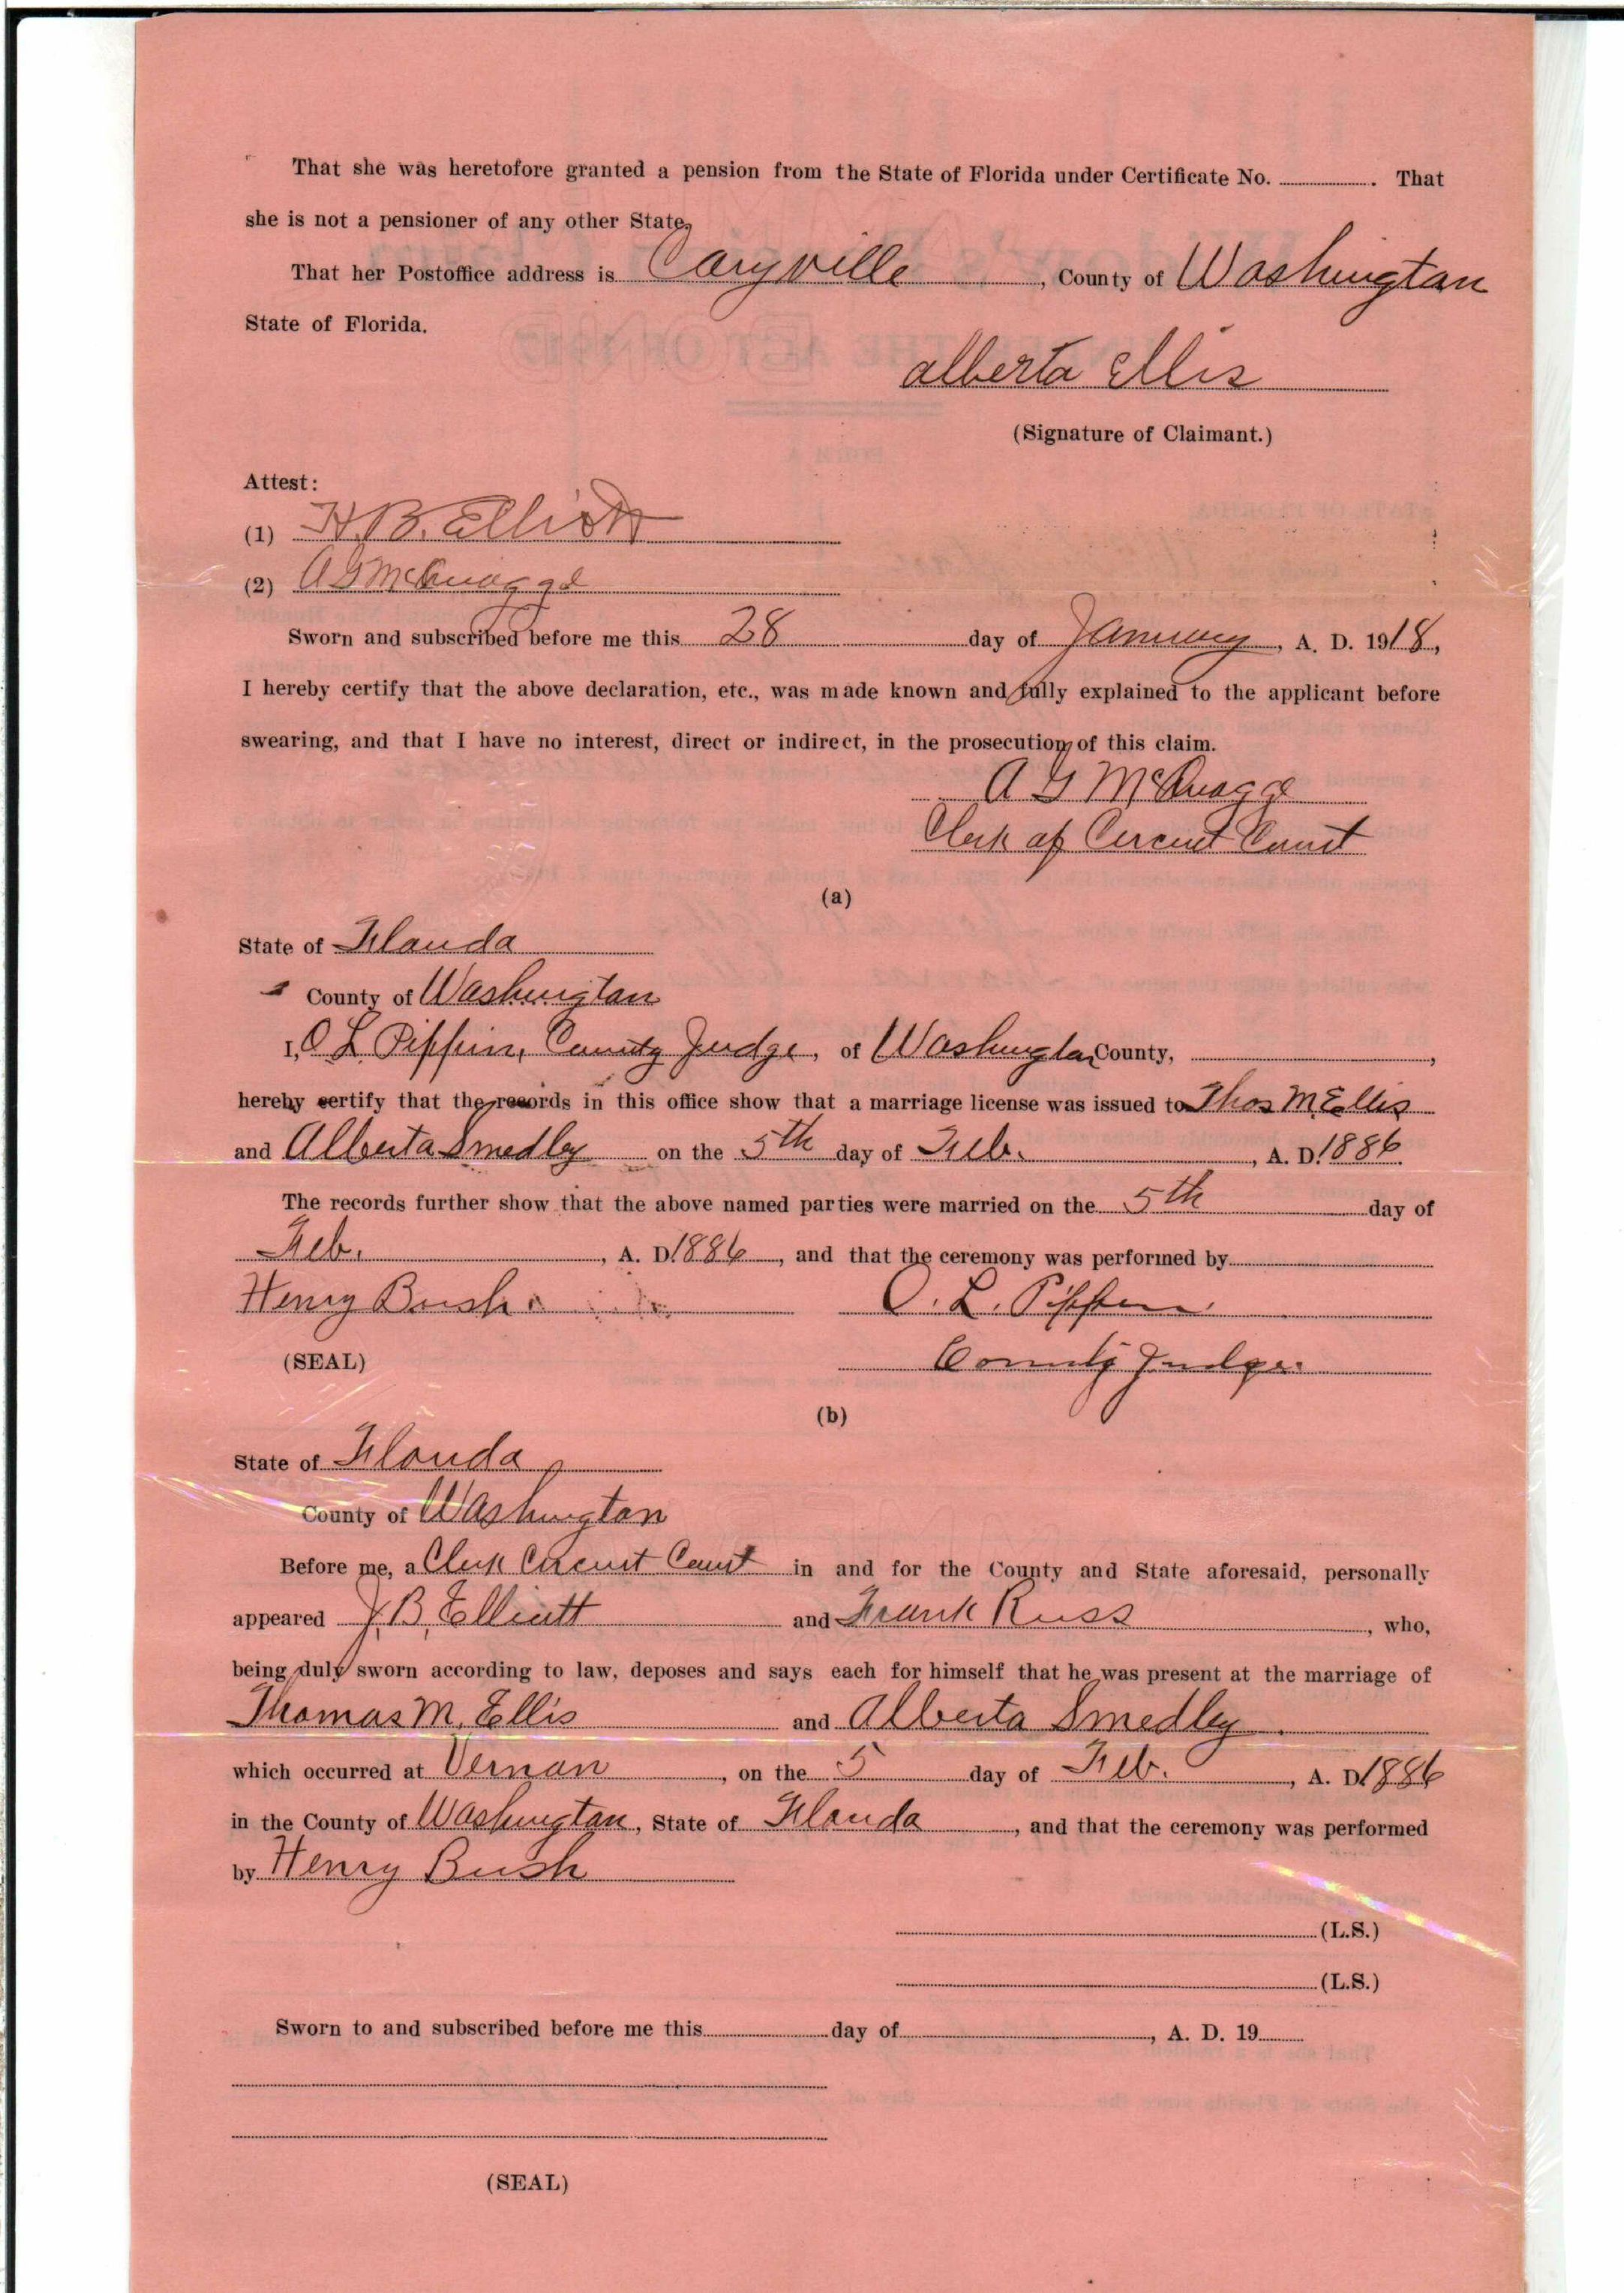 That she was heretofore granted a pension from the State of Florida under Certificate No. ______. That
she is not a pensioner of any other State.
That her Postoffice address is Caryville, County of Washington
State of Florida.
Alberta Ellis
(Signature of Claimant.)
Attest:
(1) H. B. Elliott
(2) A G McQuagge
Sworn and subscribed before me this 28 day of January, A. D. 1918,
I hereby certify that the above declaration, etc., was made known and fully explained to the applicant before
swearing, and that I have no interest, direct or indirect, in the prosecution of this claim.
A G McQuagge
Clerk of Circuit Court
(a)
State of Florida
County of Washington
I, O L Pippin, County Judge, of Washington County,
hereby certify that the records in this office show that a marriage license was issued to Thos M. Ellis
and Alberta Smedley on the 5th day of Feb., A. D. 1886
The records further show that the above named parties were married on the 5th day of
Feb., A. D. 1886, and that the ceremony was performed by
Henry Bush. O. L. Pippin.
(SEAL) County Judge.
(b)
State of Florida
County of Washington
Before me, a Clerk Circuit Court in and for the County and State aforesaid, personally
appeared J. B. Elliott and Frank Russ, who,
being duly sworn according to law, deposes and says each for himself that he was present at the marriage of
Thomas M. Ellis and Alberta Smedley
which occurred at Vernon, on the 5 day of Feb., A. D. 1886
in the County of Washington, State of Florida, and that the ceremony was performed
by Henry Bush
(L.S.)
(L.S.)
Sworn to and subscribed before me this ______ day of ______, A. D. 19____
(SEAL)